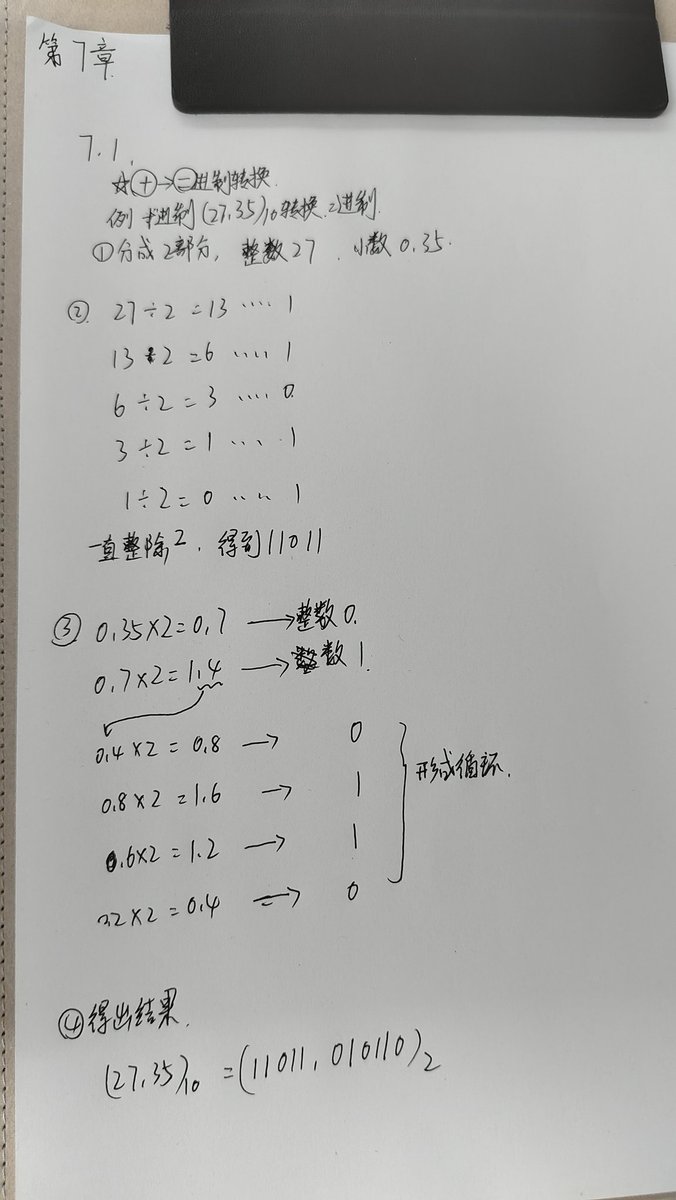 第7章
7.1.
☆⊕→㊁进制转换.
例 十进制(27.35)₁₀转换二进制.
①分成2部分, 整数27 . 小数0.35.
② 27÷2=13 ···· 1
13÷2=6 ···· 1
6÷2=3 ···· 0
3÷2=1 ···· 1
1÷2=0 ···· 1
一直整除2, 得到11011
③ 0.35×2=0.7 → 整数0.
0.7×2=1.4 → 整数1.
0.4×2=0.8 → 0
0.8×2=1.6 → 1
0.6×2=1.2 → 1
0.2×2=0.4 → 0
形成循环.
④得出结果.
(27.35)₁₀=(11011.010110)₂